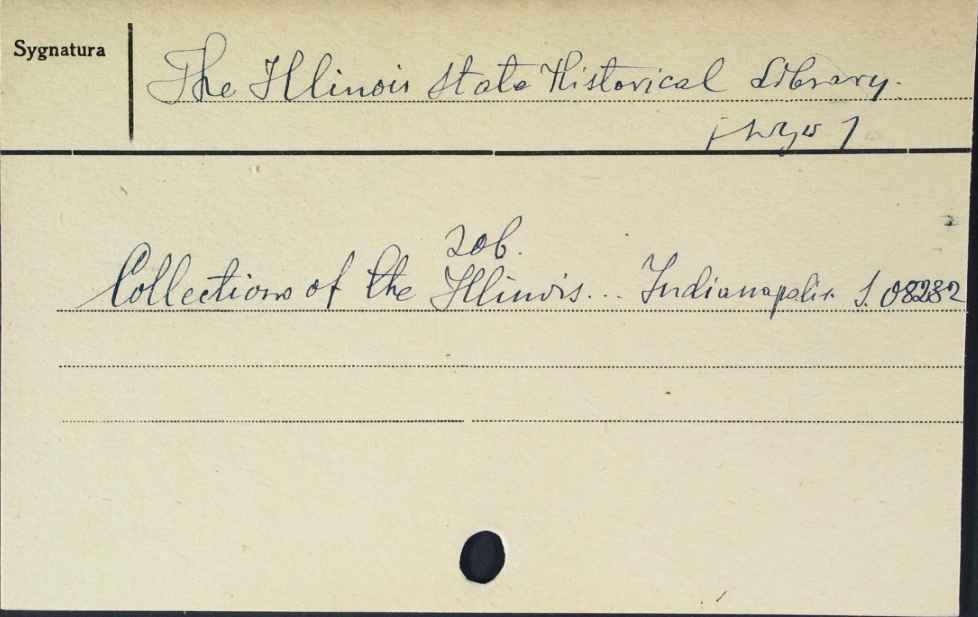 Sygnatura
The Illinois State Historical Library.
zob.
Collections of the Illinois... Indianapolis S. 08282